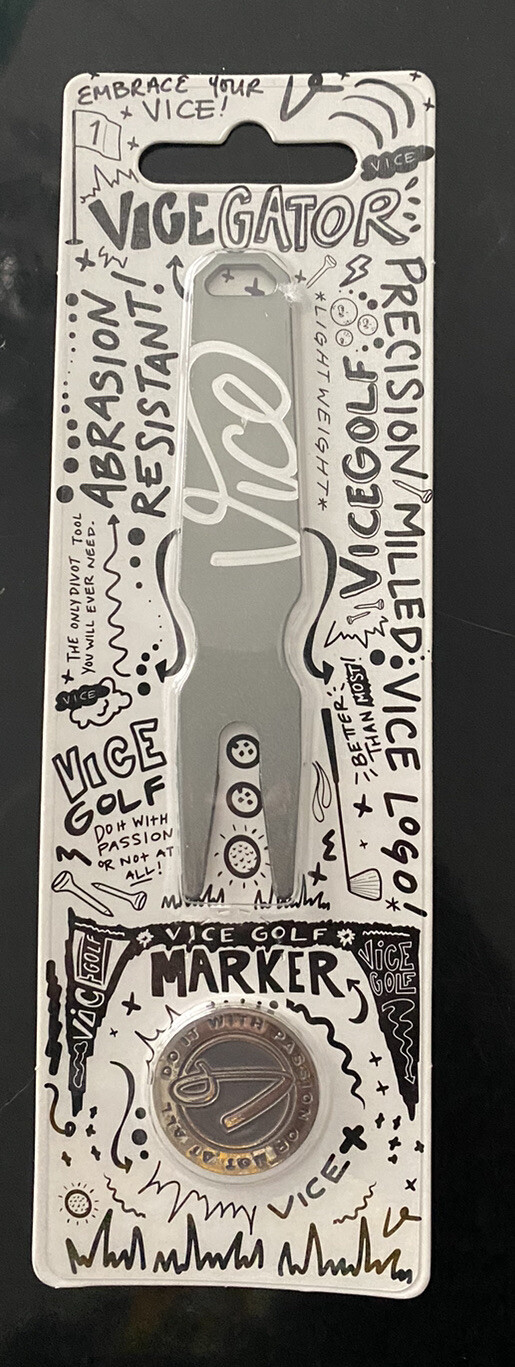 EMBRACE YOUR
VICE!
1
VICE
VICEGATOR
ABRASION
RESISTANT!
*LIGHTWEIGHT*
VICEGOLF
PRECISION MILLED: VICE LOGO!*
Vice
* THE ONLY DIVOT TOOL
YOU WILL EVER NEED.
VICE
BETTER
THAN MOST!
VICE
GOLF
DO IT WITH
PASSION
OR NOT AT
ALL!
VICE GOLF
MARKER
VICE GOLF
VICE
GOLF
DO IT WITH PASSION OR NOT AT ALL
VICE